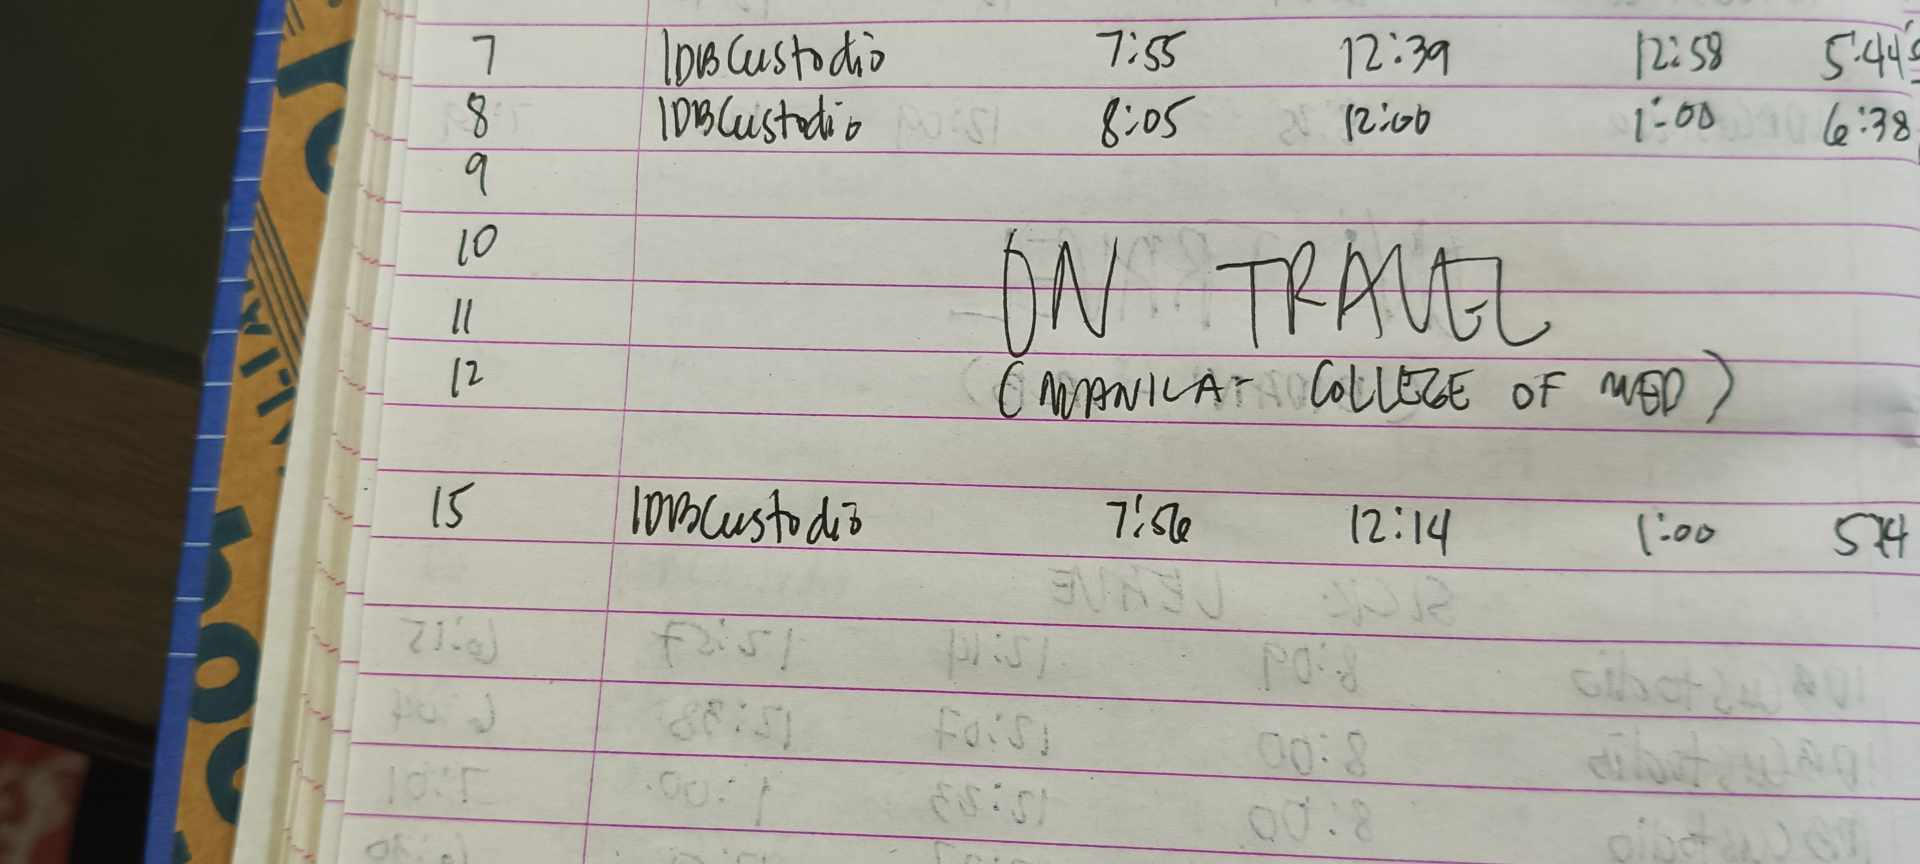 7 IDBCustodio 7:55 12:39 12:58 5:44
8 IDBCustodio 8:05 12:00 1:00 6:38
9
10
ON TRAVEL
11
12 (MANILA - COLLEGE OF MED)
15 IDBCustodio 7:56 12:14 1:00